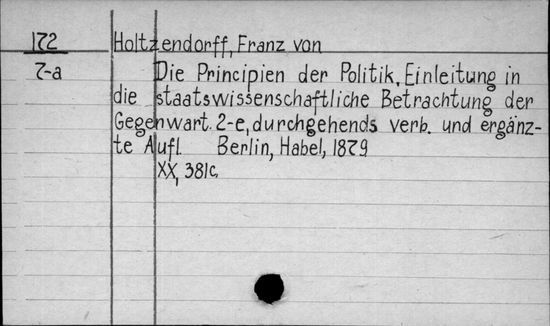 172 Holtzendorff, Franz von
7-a Die Principien der Politik, Einleitung in
die staatswissenschaftliche Betrachtung der
Gegenwart. 2-e, durchgehends verb. und ergänz-
te Aufl Berlin, Habel, 1879
XX, 381c.